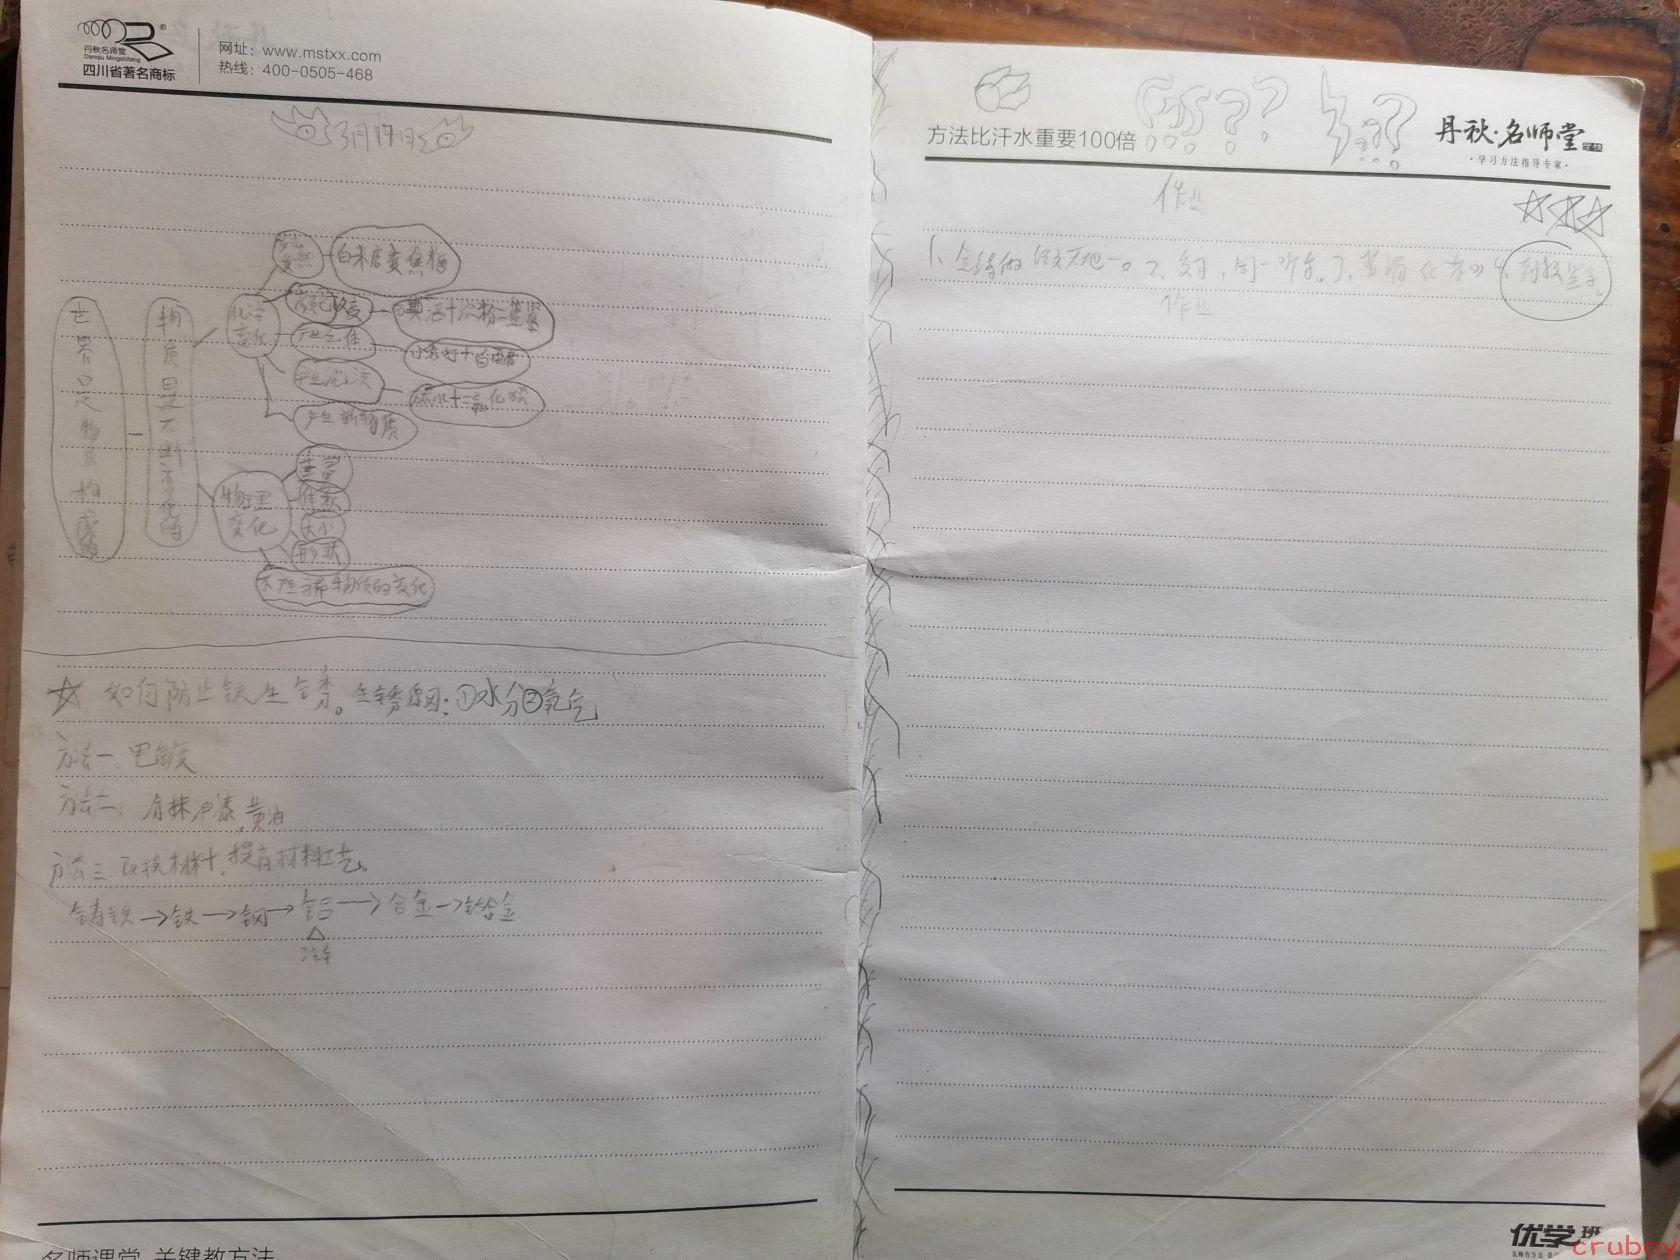 丹秋名师堂
Danqiu Mingshitang
四川省著名商标
网址：www.mstxx.com
热线：400-0505-468
3月17日
世界是物质构成的
物质是不断变化的
化学变化
发光发热
白米唐变焦糊
颜色改变
碘酒+淀粉=蓝紫
产生气体
小苏打+白醋
产生沉淀
石灰水+二氧化碳
产生新物质
物理变化
重量
体积
大小
形状
不产生新物质的变化
☆ 如何防止铁生锈。生锈原因：①水分②氧气
方法一：电镀
方法二：涂抹油漆，黄油
方法三：改换材料，提高材料工艺。
铸铁→铁→钢→铝→合金→钛合金
汽车
方法比汗水重要100倍
丹秋·名师堂 学校
·学习方法指导专家·
作业
作业
名师课堂 关键教方法
优学班
crubox